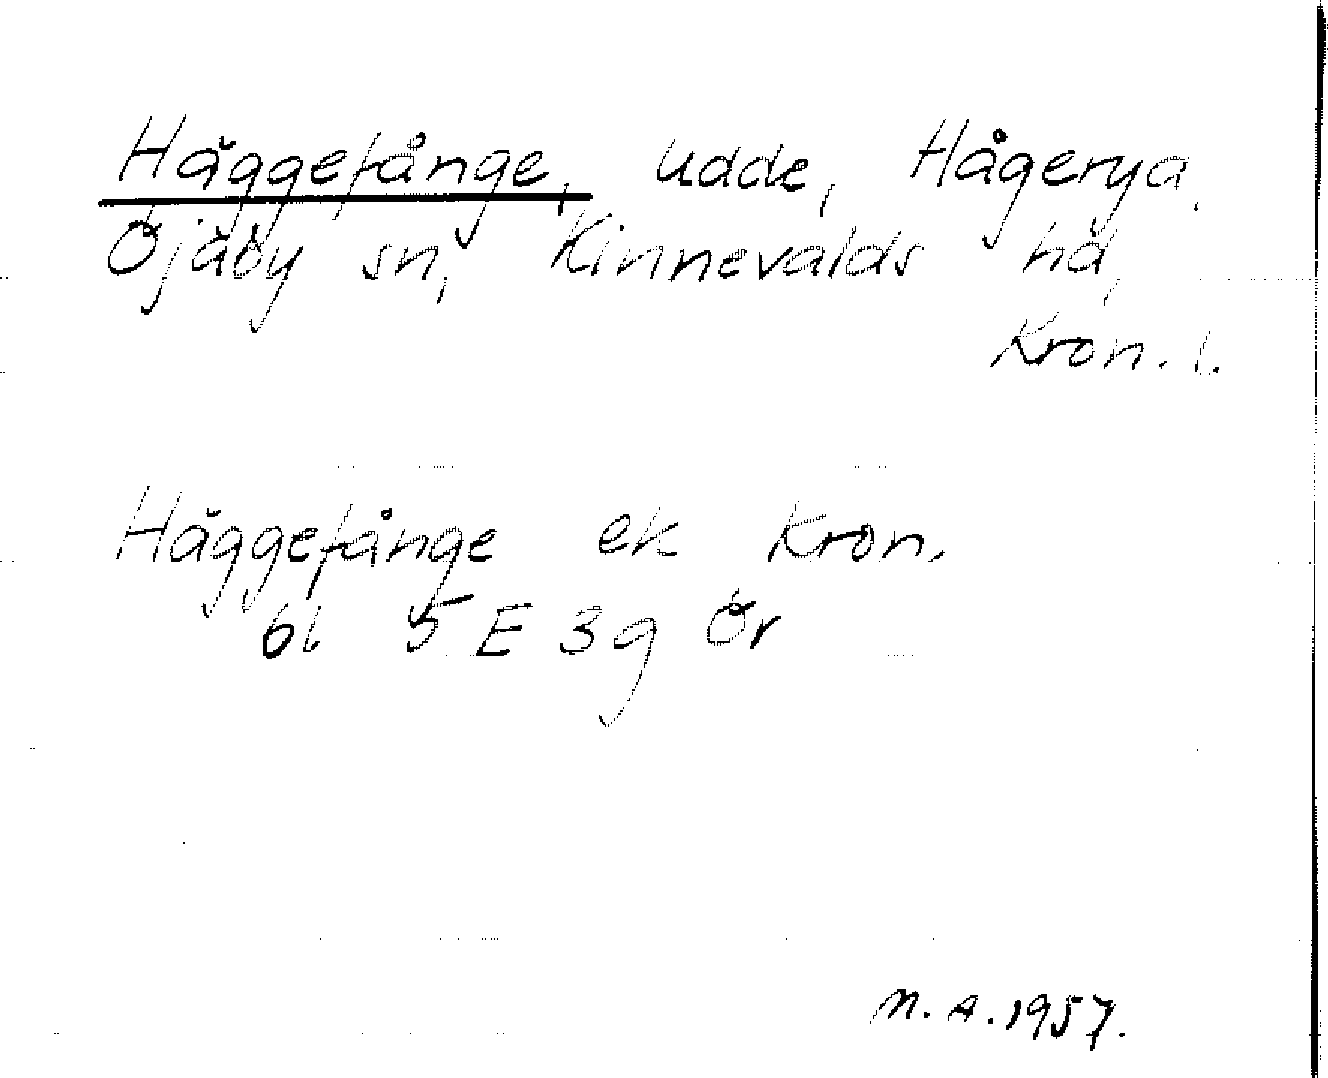 Häggefånge, udde, Hågerya,
Öjaby sn, Kinnevalds hd,
Kron. l.
Häggefånge ek Kron.
bl 5 E 3 g Ör
M. A. 1957.